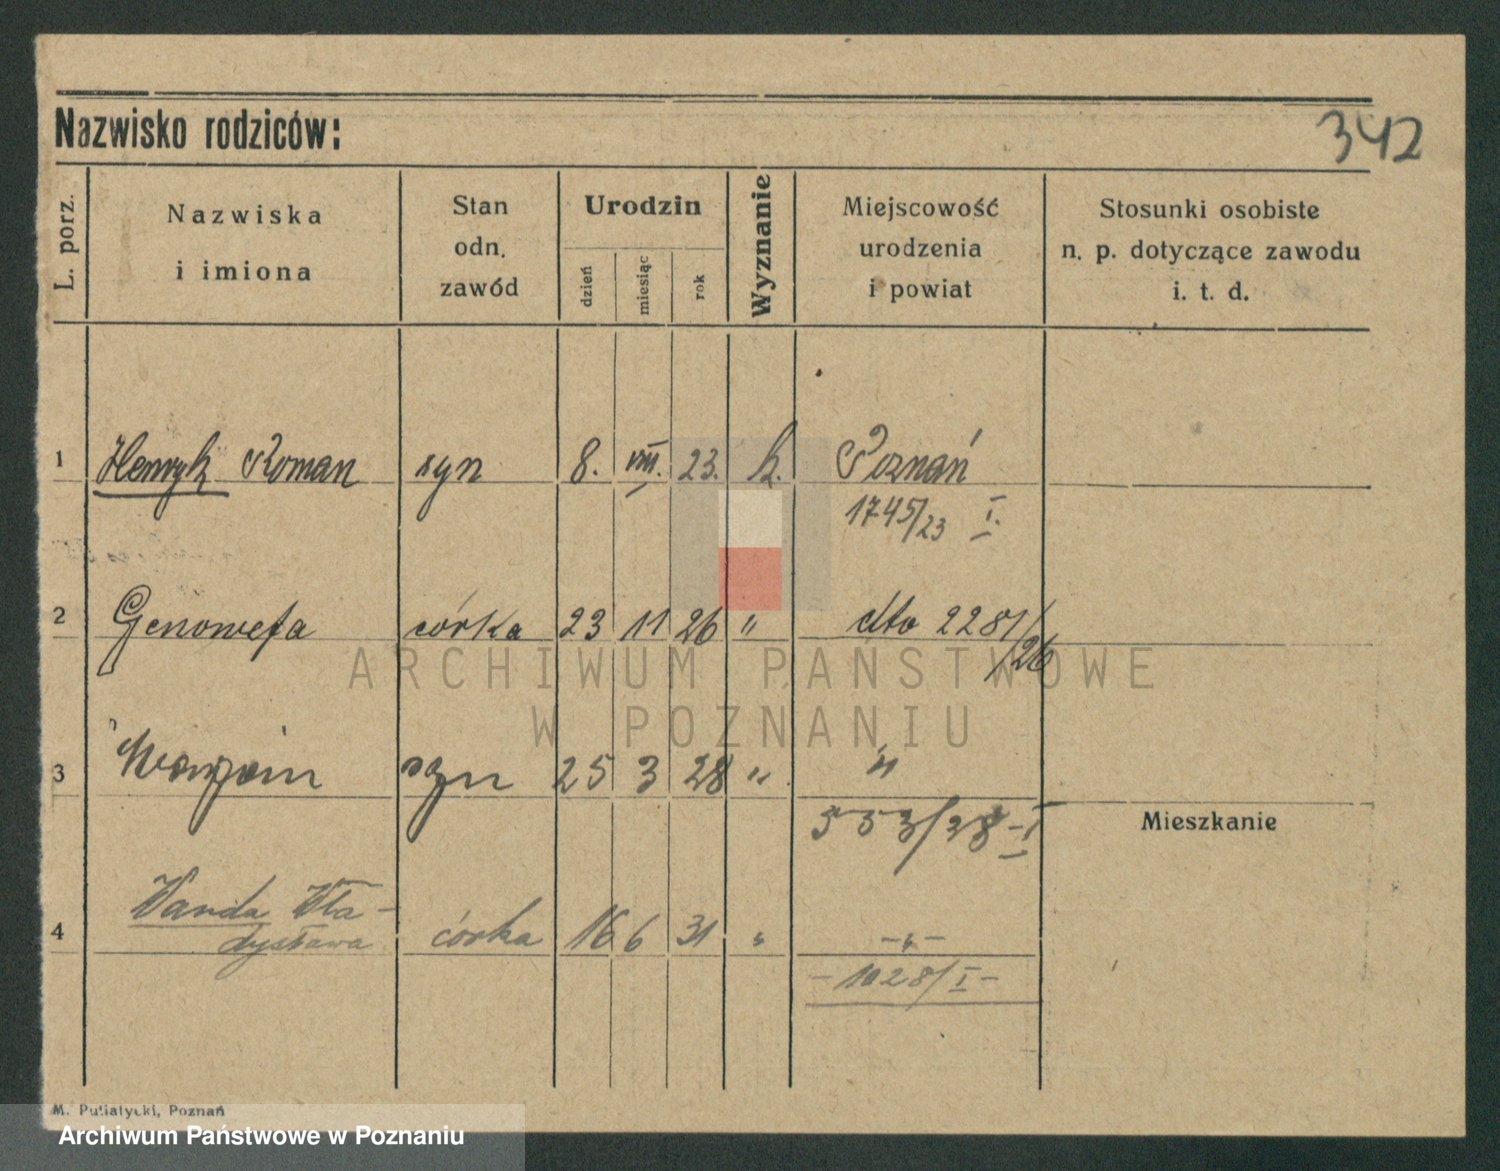 Nazwisko rodziców:
342
L. porz.
Nazwiska
i imiona
Stan
odn.
zawód
Urodzin
dzień
miesiąc
rok
Wyznanie
Miejscowość
urodzenia
i powiat
Stosunki osobiste
n. p. dotyczące zawodu
i. t. d.
1 Henryk Roman syn 8. VIII. 23. k. Poznań
1745/23 I.
2 Genowefa córka 23 11 26 " dto 2281/26
ARCHIWUM PAŃSTWOWE
W POZNANIU
3 Marjan syn 25 3 28 " "
553/28-I
Mieszkanie
4 Wanda Wła-
dysława córka 16 6 31 " -"-
-1028/I-
M. Putiatycki, Poznań
Archiwum Państwowe w Poznaniu